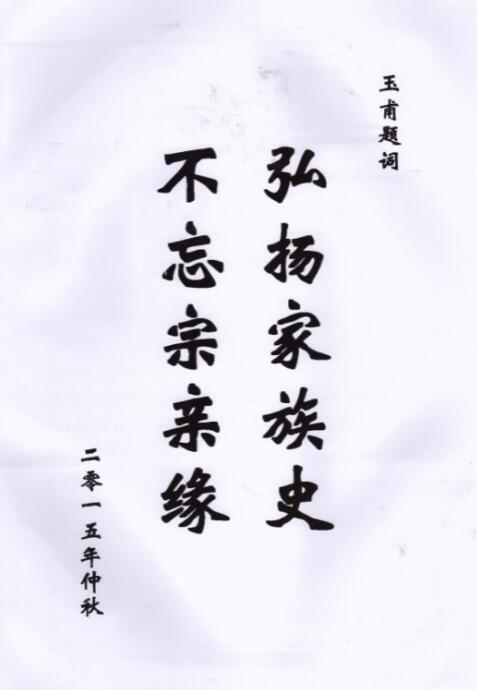 玉甫题词
弘扬家族史
不忘宗亲缘
二零一五年仲秋